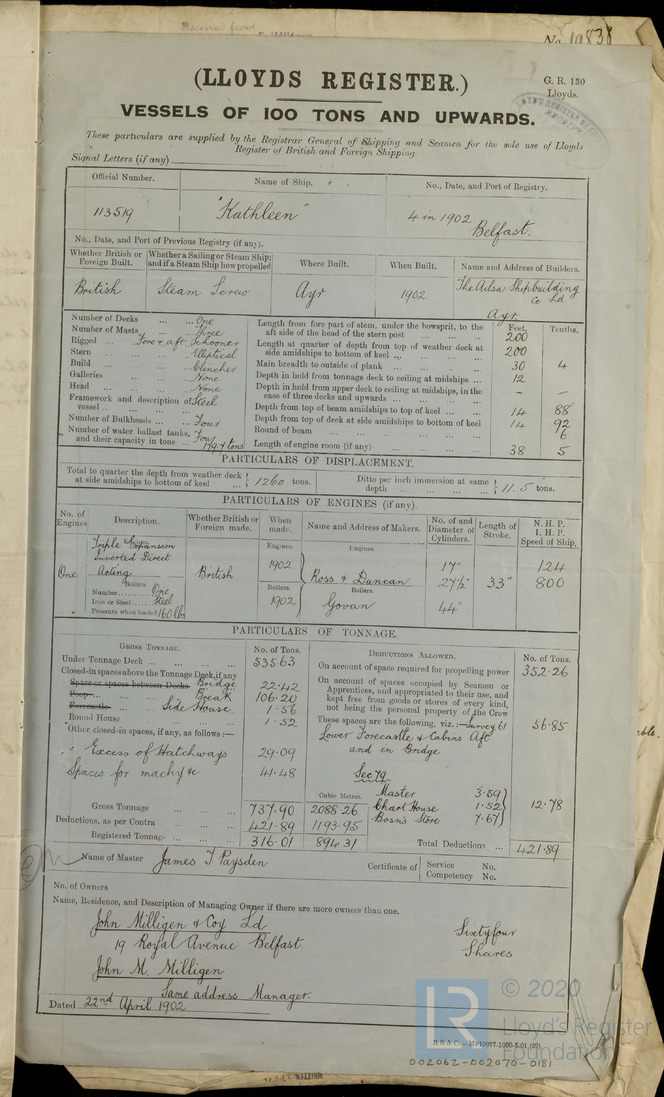 Received from
No. 19838
(LLOYDS REGISTER.)
G. R. 130
Lloyds.
VESSELS OF 100 TONS AND UPWARDS.
These particulars are supplied by the Registrar General of Shipping and Seamen for the sole use of Lloyds
Register of British and Foreign Shipping.
Signal Letters (if any)
Official Number. Name of Ship. No., Date, and Port of Registry.
113519 "Kathleen" 4 in 1902 Belfast.
No., Date, and Port of Previous Registry (if any).
Whether British or Foreign Built. Whether a Sailing or Steam Ship; and if a Steam Ship how propelled Where Built. When Built. Name and Address of Builders.
British Steam Screw Ayr 1902 The Ailsa Shipbuilding Co Ld Ayr
Number of Decks ... ... One
Number of Masts ... ... Three
Rigged ... Fore & aft Schooner
Stern ... ... Elliptical
Build ... ... Clincher
Galleries ... ... None
Head ... ... None
Framework and description of vessel ... Steel
Number of Bulkheads ... ... Four
Number of water ballast tanks, and their capacity in tons ... Four
Feet. Tenths.
Length from fore part of stem, under the bowsprit, to the aft side of the head of the stern post ... 200
Length at quarter of depth from top of weather deck at side amidships to bottom of keel ... 200
Main breadth to outside of plank ... 30 4
Depth in hold from tonnage deck to ceiling at midships ... 12
Depth in hold from upper deck to ceiling at midships, in the case of three decks and upwards ... – –
Depth from top of beam amidships to top of keel ... 14 88
Depth from top of deck at side amidships to bottom of keel 14 92
Round of beam ... 6
Length of engine room (if any) ... 38 5
PARTICULARS OF DISPLACEMENT.
Total to quarter the depth from weather deck at side amidships to bottom of keel ... 1260 tons. Ditto per inch immersion at same depth ... 11.5 tons.
PARTICULARS OF ENGINES (if any).
No. of Engines Description. Whether British or Foreign made. When made. Name and Address of Makers. No. of and Diameter of Cylinders. Length of Stroke. N. H. P. I. H. P. Speed of Ship.
One Triple Expansion Inverted Direct Acting British Engines. 1902 Engines. Ross & Duncan Govan 17" 27½" 44" 33" 124 800
Boilers.
Number One
Iron or Steel Steel
Pressure when loaded 160 lbs
Boilers. 1902
Boilers.
PARTICULARS OF TONNAGE.
GROSS TONNAGE. No. of Tons.
Under Tonnage Deck ... 535.63
Closed-in spaces above the Tonnage Deck, if any
Space or spaces between Decks Bridge 22.42
Poop Break 106.20
Forecastle Side House 1.56
Round House 1.52
Other closed-in spaces, if any, as follows:—
Excess of Hatchways 29.09
Spaces for machy &c 41.48
Cubic Metres.
Gross Tonnage ... 737.90 2088.26
Deductions, as per Contra ... 421.89 1193.95
Registered Tonnage ... 316.01 894.31
DEDUCTIONS ALLOWED. No. of Tons.
On account of space required for propelling power 352.26
On account of spaces occupied by Seamen or Apprentices, and appropriated to their use, and kept free from goods or stores of every kind, not being the personal property of the Crew
These spaces are the following, viz.:— Survey 61 56.85
Lower Forecastle & Cabins Aft
and in Bridge
Sec 79
Master 3.59
Chart House 1.52 12.78
Bosn's Store 7.67
Total Deductions ... 421.89
Name of Master James T. Paysden
Certificate of Service No.
Competency No.
No. of Owners
Name, Residence, and Description of Managing Owner if there are more owners than one.
John Milligen & Coy Ld
19 Royal Avenue Belfast.
Sixtyfour
Shares
John M. Milligen
Same address Manager.
Dated 22nd April 1902
LR
© 2020
Lloyd's Register
Foundation
002062-002070-0181